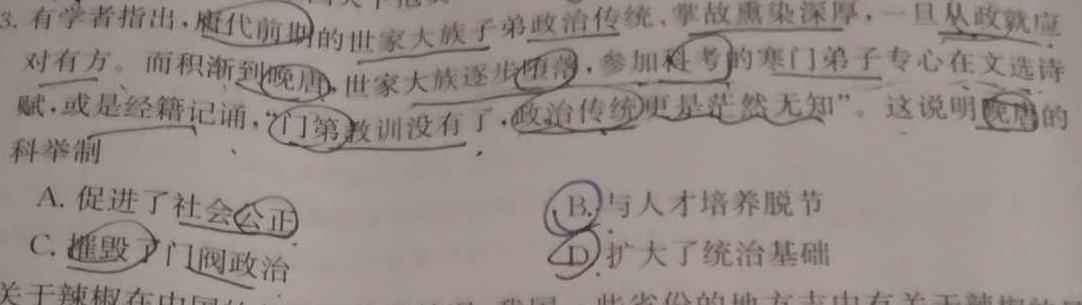 3. 有学者指出,唐代前期的世家大族子弟政治传统、掌故熏染深厚,一旦从政就应
对有方。而积渐到晚唐,世家大族逐步堕落,参加科考的寒门弟子专心在文选诗
赋,或是经籍记诵,“门第教训没有了,政治传统更是茫然无知”。这说明晚唐的
科举制
A. 促进了社会公正
B. 与人才培养脱节
C. 摧毁了门阀政治
D. 扩大了统治基础
关于辣椒在中国